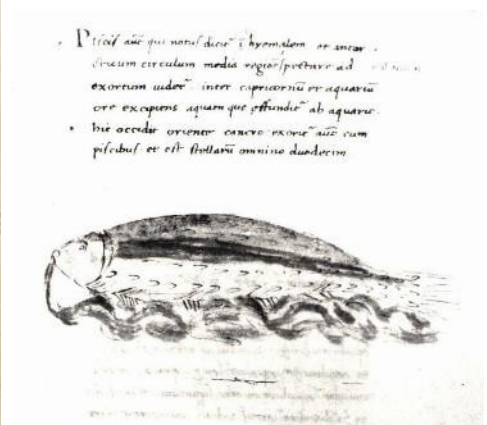 Piscis aut̄ qui notus dicit̄ ī hyemalem et antar
cticum circulum media regiōe spectare ad
exortum videt̄ inter capricornū et aquariū
ore excipiens aquam que effundit̄ ab aquario.
hic occidit oriente cancro exorit̄ aut̄ cum
piscibus et est stellarū omnino duodecim